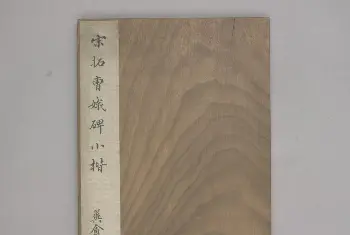 宋拓曹娥碑小楷